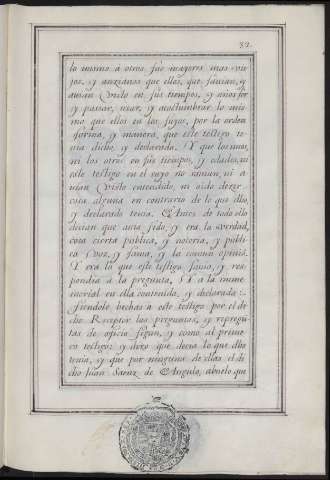 32.
lo mismo a otros sus mayores mas vie
jos, y anzianos que ellos, que sauian, y
auian visto en sus tiempos, y años ser
y passar, usar, y acostumbrar lo mis
mo que ellos en los suyos, por la orden
forma, y manera, que este testigo te
nia dicho, y declarado. Y que los unos,
ni los otros en sus tiempos, y edades, ni
este testigo en el suyo no sauian, ni a
uian visto entendido, ni oido dezir
cosa alguna en contrario de lo que dho
y declarado tenia. Antes de todo ello
dezian que auia sido, y era la verdad,
cosa cierta publica, y notoria, y publi
ca voz, y fama, y la comun opinio.
Y era lo que este testigo sauia, y res
pondia a la pregunta, y a la imme
morial en ella contenida, y declarada :
siendole hechas a este testigo por el di
cho Receptor las preguntas, y repregu
tas de oficio segun, y como al primer
testigo: y dixo que dezia lo que dho
tenia, y que por ninguna de ellas el di
cho Juan Saenz de Angulo, abuelo que